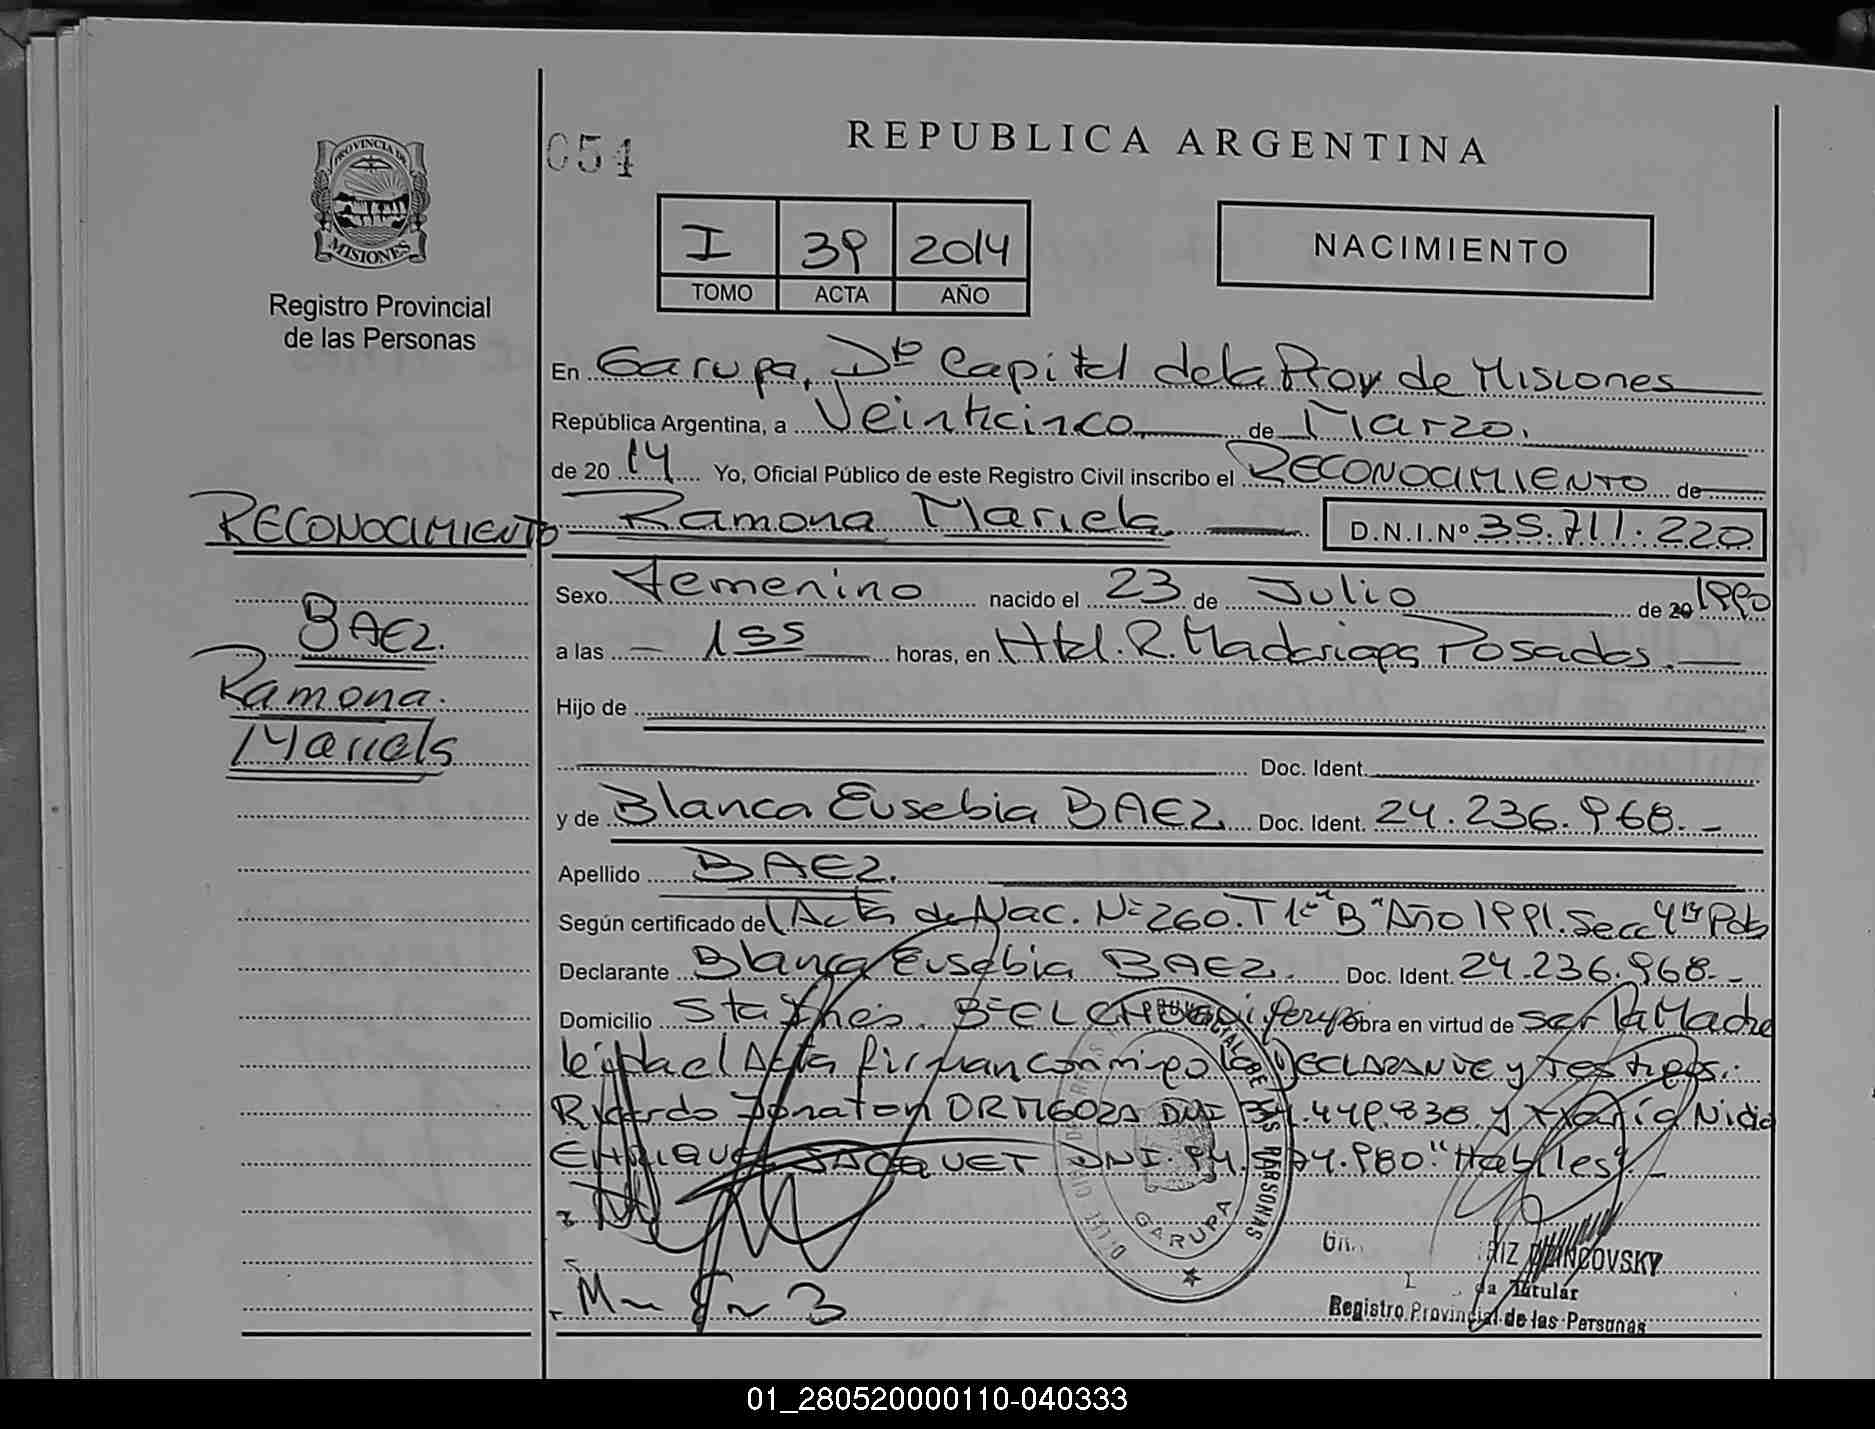 054
REPUBLICA ARGENTINA
PROVINCIA DE
MISIONES
Registro Provincial
de las Personas
I 39 2014
TOMO ACTA AÑO
NACIMIENTO
En Garupa, Dto Capital de la Prov de Misiones
República Argentina, a Veinticinco de Marzo.
de 2014 Yo, Oficial Público de este Registro Civil inscribo el RECONOCIMIENTO de
Ramona Mariela D.N.I.Nº 35.711.220
RECONOCIMIENTO
BAEZ.
Ramona.
Mariela
Sexo Femenino nacido el 23 de Julio de 20 1990
a las 1 55 horas, en Htal. R. Madariaga Posadas.
Hijo de
Doc. Ident.
y de Blanca Eusebia BAEZ Doc. Ident. 24.236.968.-
Apellido BAEZ.
Según certificado de Acta de Nac. Nº 260. T 1º "B" Año 1991. Secc 4ta Pdas
Declarante Blanca Eusebia BAEZ. Doc. Ident. 24.236.968.-
Domicilio Sta Inés. Bº EL Garupa obra en virtud de ser la Madre
leída el Acta firman conmigo la DECLARANTE y Testigos:
Ricardo Jonaton ORTIGOZA DNI 34.449.838 y María Nidia
ENRIQUE JACQUET DNI 94.574.980 "Hábiles".-
GARUPA
RIZ DZINCOVSKY
da Titular
Registro Provincial de las Personas
01_280520000110-040333